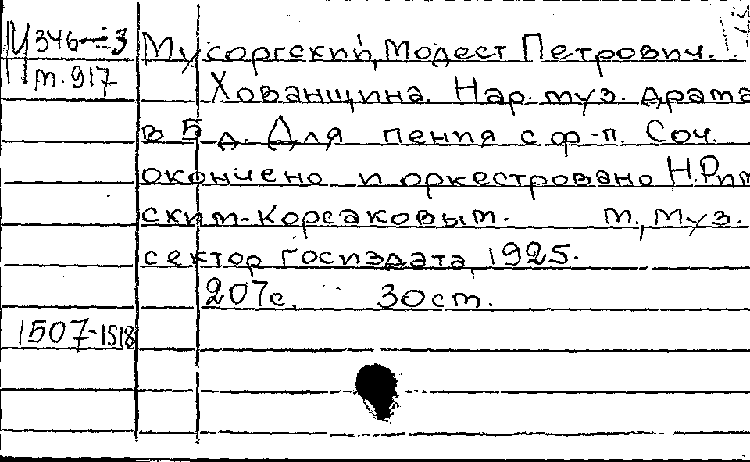 Ц 346-3
М. 917
Мусоргский, Модест Петрович.
Хованщина. Нар. муз. драма
в 5 д. Для пения с ф-п. Соч.
окончено и оркестровано Н. Рим
ским-Корсаковым. М., Муз.
сектор Госиздата, 1925.
207 с. 30 см.
1507-1518